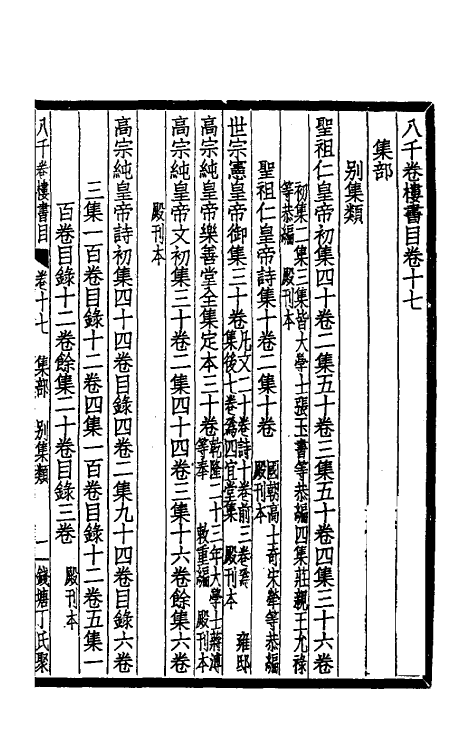 八千卷樓書目卷十七
集部
別集類
聖祖仁皇帝初集四十卷二集五十卷三集五十卷四集三十六卷
初集二集三集皆大學士張玉書等恭編四集莊親王允祿
等恭編　殿刊本
聖祖仁皇帝詩集十卷二集十卷
國朝高士奇宋犖等恭編
殿刊本
世宗憲皇帝御集三十卷
凡文二十卷詩十卷前三卷爲　雍邸
集後七卷爲四宜堂集　殿刊本
高宗純皇帝樂善堂全集定本三十卷
乾隆二十三年大學士蔣溥
等奉　敕重編　殿刊本
高宗純皇帝文初集三十卷二集四十四卷三集十六卷餘集六卷
殿刊本
高宗純皇帝詩初集四十四卷目錄四卷二集九十四卷目錄六卷
三集一百卷目錄十二卷四集一百卷目錄十二卷五集一
百卷目錄十二卷餘集二十卷目錄三卷　殿刊本
八千卷樓書目　卷十七　集部　別集類　一　錢塘丁氏聚